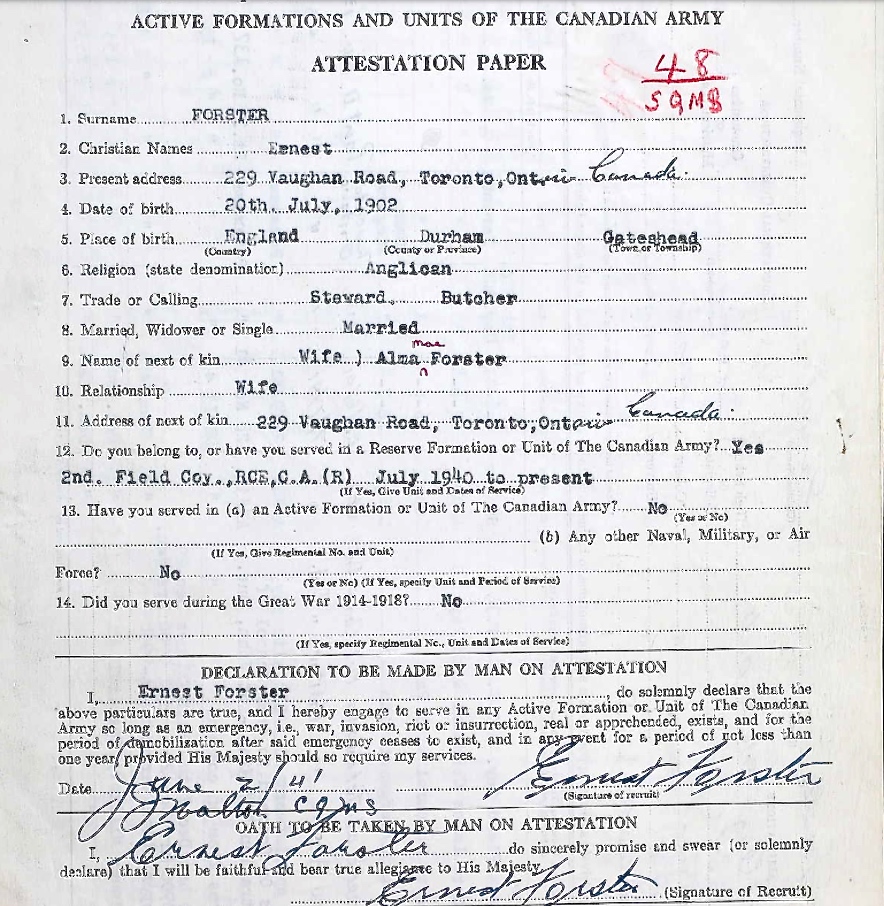 ACTIVE FORMATIONS AND UNITS OF THE CANADIAN ARMY
ATTESTATION PAPER
48
SQMS
1. Surname FORSTER
2. Christian Names Ernest
3. Present address 229 Vaughan Road, Toronto, Ontario Canada.
4. Date of birth 20th. July, 1902
5. Place of birth England Durham Gateshead
(Country) (County or Province) (Town or Township)
6. Religion (state denomination) Anglican
7. Trade or Calling Steward, Butcher
8. Married, Widower or Single Married
mae
9. Name of next of kin Wife ) Alma Forster
10. Relationship Wife
11. Address of next of kin 229 Vaughan Road, Toronto, Ontario Canada.
12. Do you belong to, or have you served in a Reserve Formation or Unit of The Canadian Army? Yes
2nd. Field Coy., RCE, C.A.(R) July 1940 to present
(If Yes, Give Unit and Dates of Service)
13. Have you served in (a) an Active Formation or Unit of The Canadian Army? No
(Yes or No)
(b) Any other Naval, Military, or Air
(If Yes, Give Regimental No. and Unit)
Force? No
(Yes or No) (If Yes, specify Unit and Period of Service)
14. Did you serve during the Great War 1914-1918? No
(If Yes, specify Regimental No., Unit and Dates of Service)
DECLARATION TO BE MADE BY MAN ON ATTESTATION
I, Ernest Forster, do solemnly declare that the
above particulars are true, and I hereby engage to serve in any Active Formation or Unit of The Canadian
Army so long as an emergency, i.e., war, invasion, riot or insurrection, real or apprehended, exists, and for the
period of demobilization after said emergency ceases to exist, and in any event for a period of not less than
one year, provided His Majesty should so require my services.
Date June 2/41 Ernest Forster
(Signature of recruit)
CQMS
OATH TO BE TAKEN BY MAN ON ATTESTATION
I, Ernest Forster do sincerely promise and swear (or solemnly
declare) that I will be faithful and bear true allegiance to His Majesty.
Ernest Forster (Signature of Recruit)